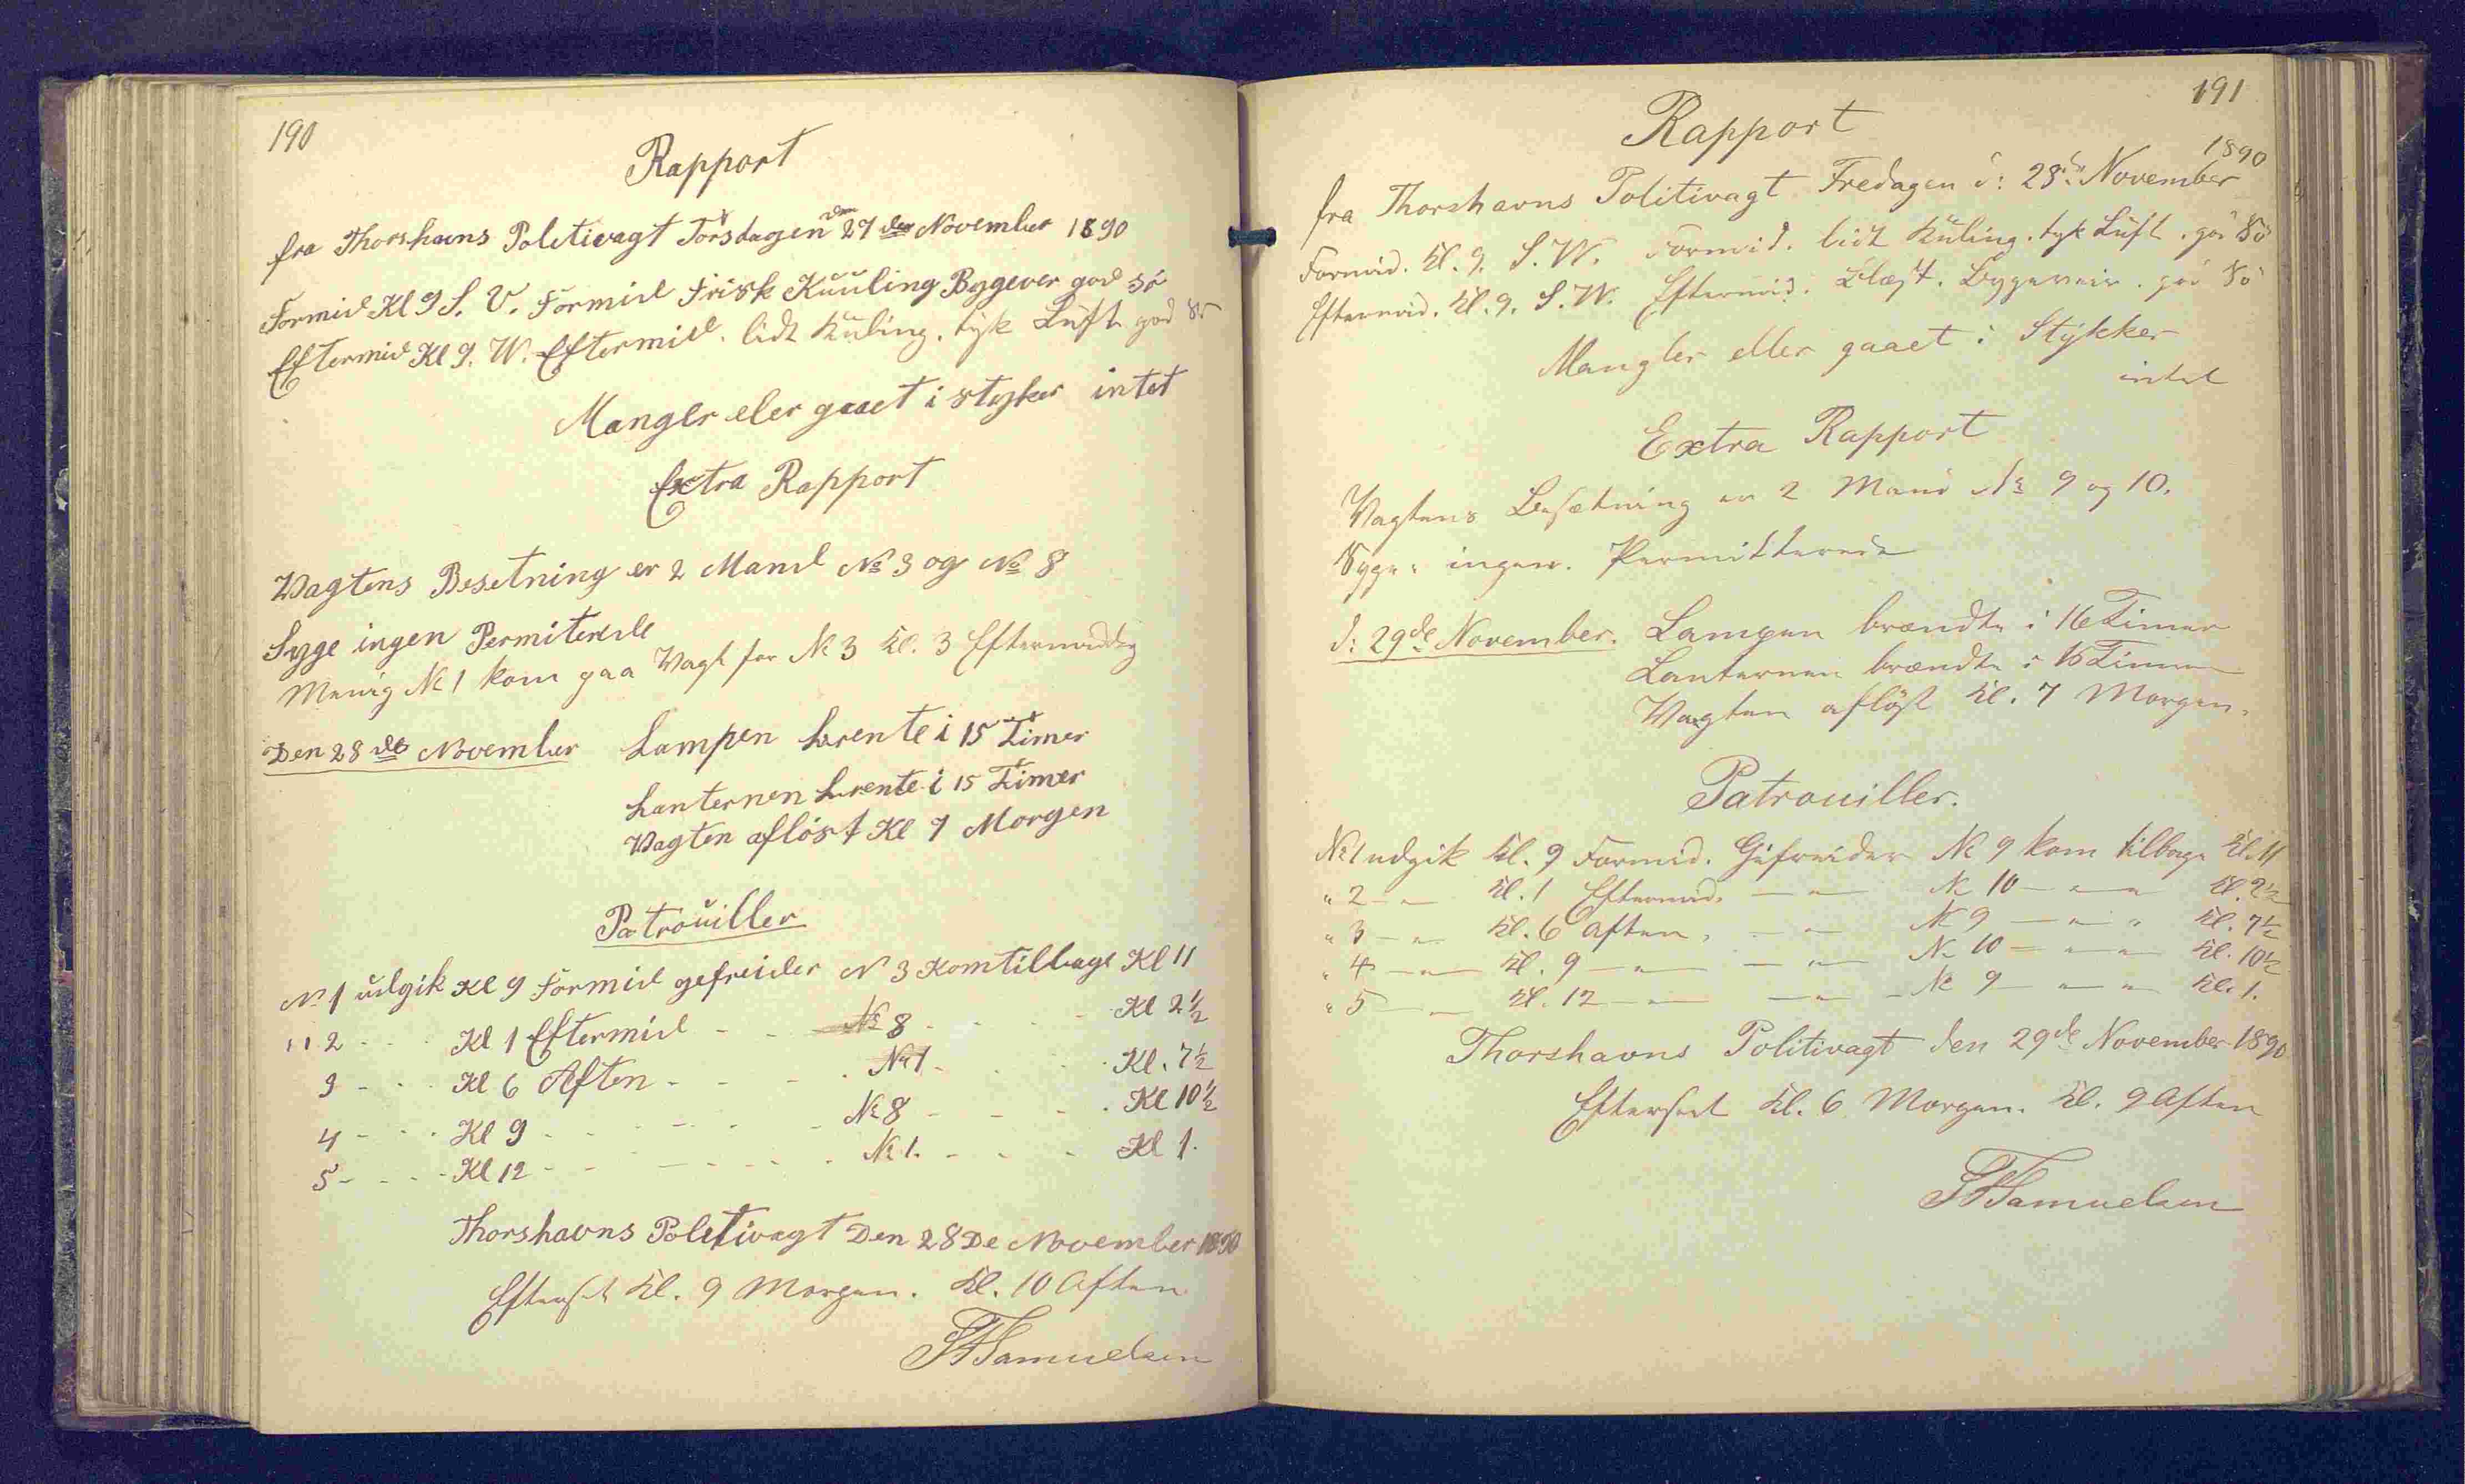 190
Rapport
fra Thorshavns Politivagt Torsdagen den 27 des November 1890
Formid Kl 9 S. V. Formid Frisk Kuuling Bygever god sö
Eftermid Kl 9. W. Eftermid. lidt Kuling. tyk Luft god Sö
Mangler eler gaaet i styker intet
Extra Rapport
Vagtens Besetning er 2 Mand No 3 og No 8
Syge ingen Permiterede
Menig No 1 kom paa Vagt for No 3 Kl. 3 Eftermiddag
Den 28 de November Lampen brente i 15 Timer
Lanternen brente i 15 Timer
Vagten aflöst Kl 7 Morgen
Patrouiller
No 1 udgik Kl 9 Formid gefreider No 3 Kom tilbage Kl 11
" 2 - - - Kl 1 Eftermid - - No 8 - - - - Kl 2½
3 - - - Kl 6 Aften - - - - No 1 - - - Kl. 7½
4 - - - Kl 9 - - - - - - No 8 - - - - Kl 10½
5 - - - - Kl 12 - - - - - - - No 1. - - - - Kl 1.
Thorshavns Politivagt Den 28 De November 1890
Efterset Kl. 9 Morgen. Kl. 10 Aften
Samuelsen
191
Rapport
fra Thorshavns Politivagt Fredagen d: 28de November 1890
Formid. Kl. 9. S. W. Formid. lidt Kuling. tyk Luft. god Sö
Eftermid. Kl. 9. S. W. Eftermid. Bygeveir. god Sö
Mangler eller gaaet i Stykker
intet
Extra Rapport
Vagtens Besætning er 2 Mand No 9 og 10.
Syge: ingen. Permitterede
d: 29de November. Lampen brændte i 16 Timer
Lanternen brændte i 15 Timer
Vagten aflöst Kl. 7 Morgen.
Patrouiller.
No 1 udgik Kl. 9 Formid. Gefreider No 9 kom tilbage Kl. 11
" 2 — " — Kl. 1 Eftermid. — " — No 10 — " — " Kl. 2½
" 3 — " — Kl. 6 Aften, — " — No 9 — " — " Kl. 7½
" 4 — " — Kl. 9 — " — — " — No 10 — " — " Kl. 10½
" 5 — " — Kl. 12 — " — — " — No 9 — " — " Kl. 1.
Thorshavns Politivagt den 29de November 1890
Efterset Kl. 6 Morgen. Kl. 9 Aften
Samuelsen